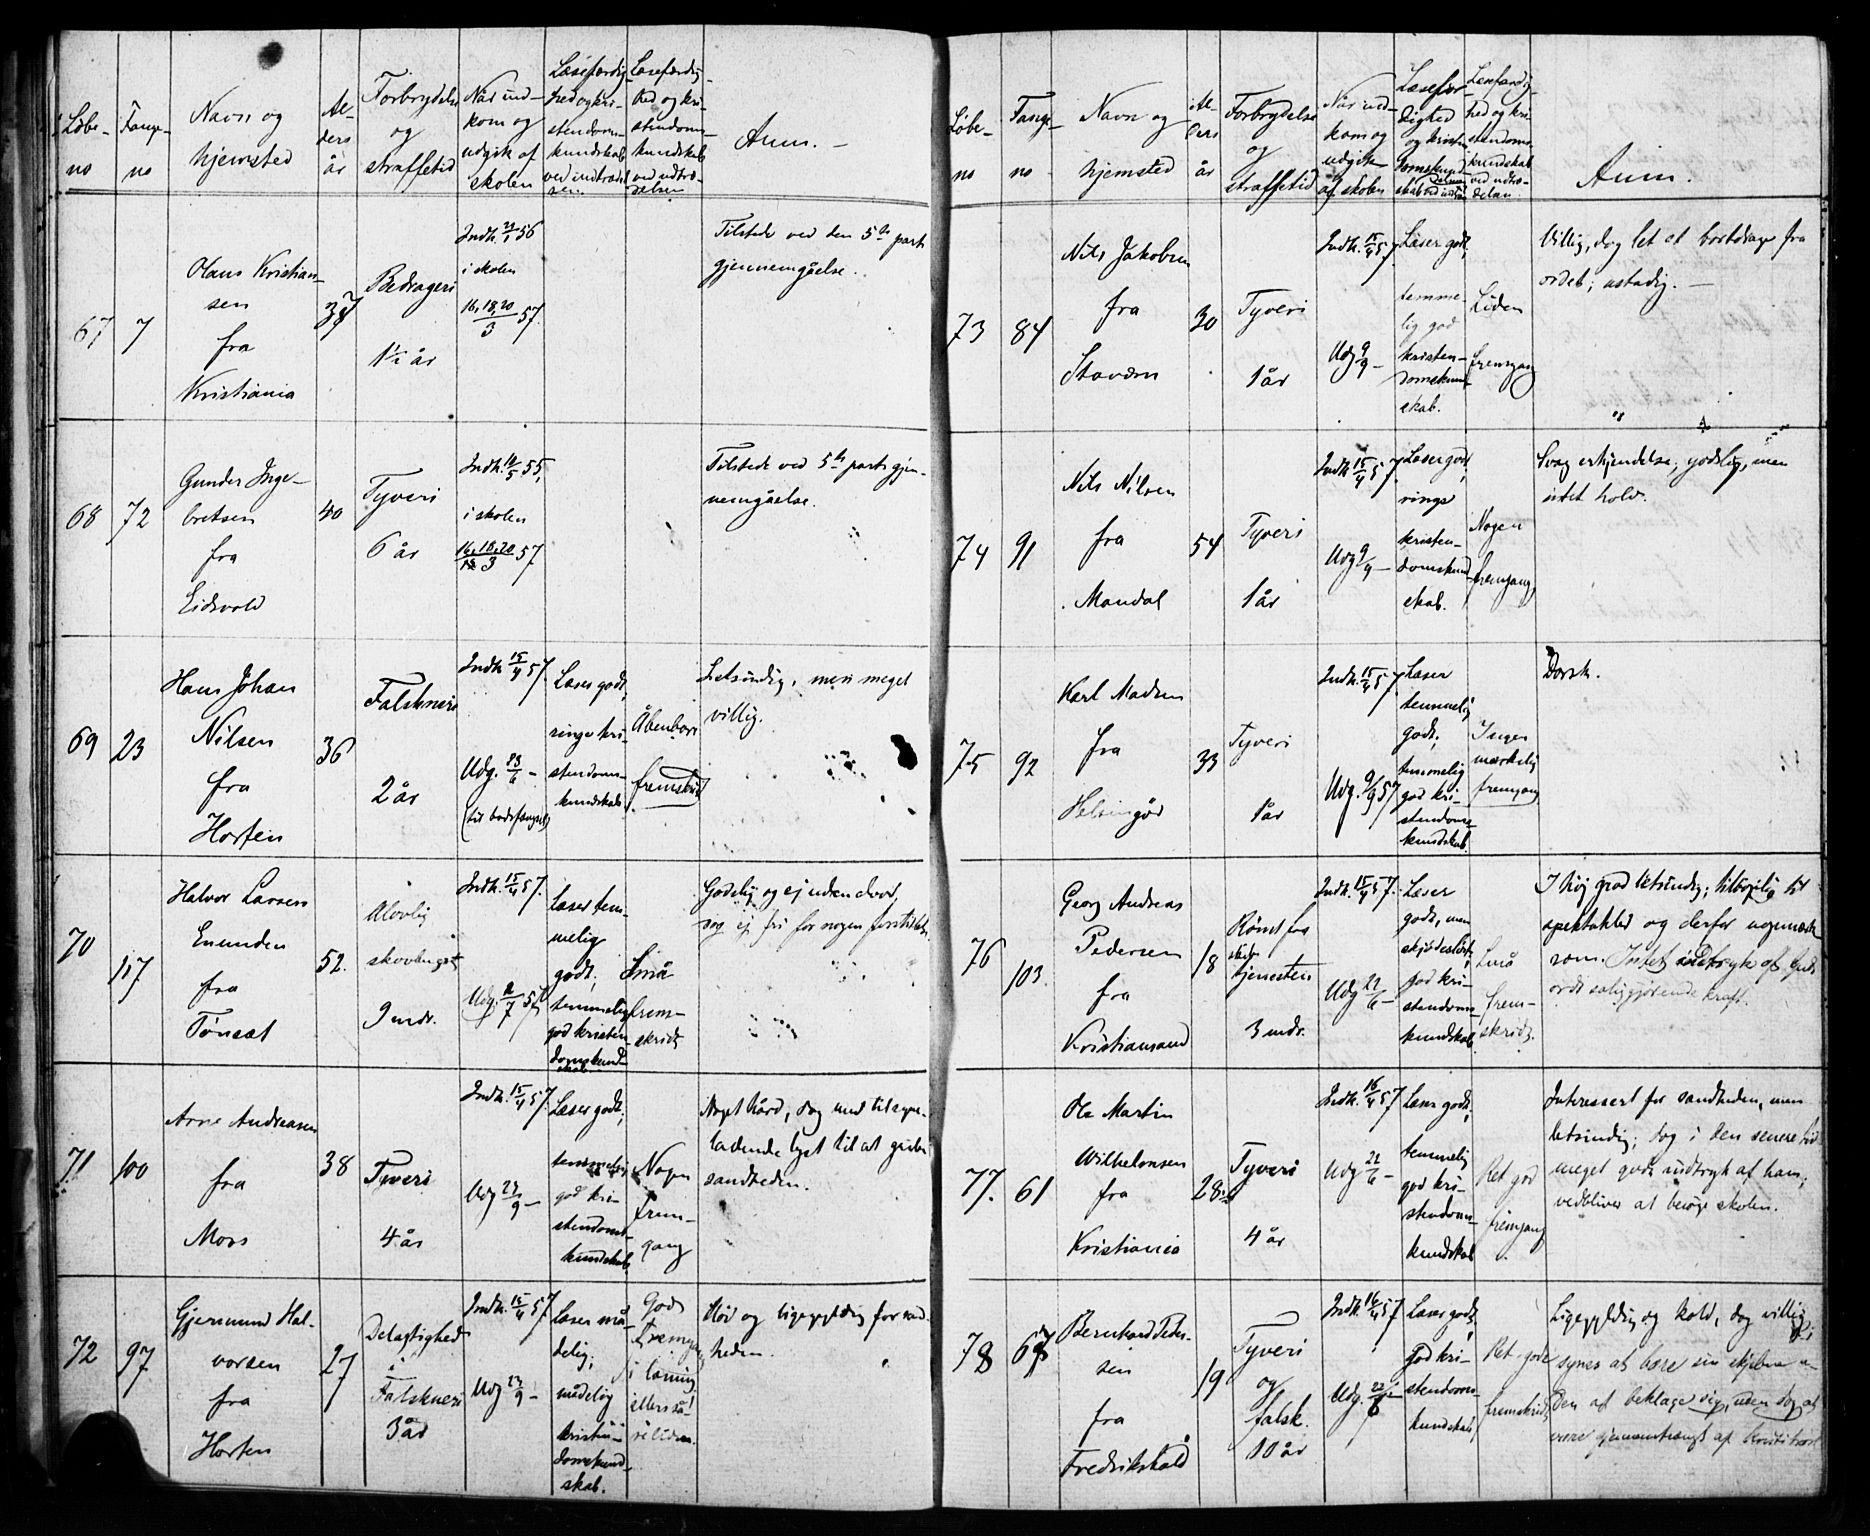 Løbe-
no
Fange-
no
Navn og
hjemsted
Al-
ders
år
Forbrydelse
og
straffetid
Når ind-
kom og
udgik af
skolen
Læsefærdig-
hed og kri-
stendoms-
kundskab
ved indtrædel-
sen
Læsefærdig-
hed og kri-
stendoms-
kundskab
ved udtræ-
delsen
Anm. -
67
7
Olaus Kristian-
sen
fra
Kristiania
37
Bedrageri
1½ år
Indk. 56
i skolen
16, 18, 20/3 57.
Tilstede ved den 5te parts
gjennemgåelse.
68
72
Gunder Inge-
bretsen
fra
Eidsvold
40
Tyveri
6 år
Indk. 55,
i skolen
16, 18, 20/3 57
Tilstede ved 5te parts gjen-
nemgåelse.
69
23
Hans Johan
Nilsen
fra
Horten
36
Falskneri
2 år
Indk. 15/4 57.
Udg. 23/6 -
(til bodsfængslet)
Læser godt,
ringe kri-
stendoms-
kundskab
Åbenbart
fremskridt
Letsindig, men meget
villig.
70
117
Halvor Larsen
Enunden
fra
Tønset
52.
Ulovlig
skovhugst
9 mdr.
Indk. 15/4 57.
Udg. 57
Læser tem-
melig
godt,
temmelig
god kristen-
domskund-
skab.
Små
frem-
skridt
Godslig og ej uden
dog ej fri for nogen
71
100
Arne Andreasen
fra
Moss
38
Tyveri
4 år
Indk. 15/4 57.
Udg 23/9 -
Læser godt,
temmelig
god kri-
stendoms-
kundskab
Nogen
frem-
gang
Noget hård, dog med tilsyne-
ladende lyst til at gribe
sandheden.
72
97
Gjermund Hal-
vorsen
fra
Horten
27
Delagtighed
i
Falskneri
3 år
Indk. 15/4 57
Udg 23/9 -
Læser må-
delig;
mådelig
kristen-
domskund-
skab.
God
fremgang
i læsning
ellers så
så liden.
Kold og ligegyldig for sand-
heden.
Løbe-
no
Fange-
no
Navn og
hjemsted
Al-
ders
år
Forbrydelse
og
straffetid
Når ind-
kom og
udgik
af skolen
Læsefær-
dighed
og kristen-
domskund-
skab ved indtræ-
delsen
Læsefærdig-
hed og kri-
stendoms-
kundskab
ved udtræ-
delsen.
Anm.
73
84
Nils Jakobsen
fra
Stavern
30
Tyveri
1 år
Indk. 15/4 57.
Udg 9/9 -
Læser godt,
temme-
lig god
kristen-
domskund-
skab.
Liden
fremgang
Villig, dog let at bortdrage fra
ordet; ustadig. -
74
91
Nils Nilsen
fra
Mandal
54
Tyveri
1 år
Indk. 15/4 57
Udg 9/9 -
Læser godt,
ringe
kristen-
domskund-
skab.
Nogen
fremgang
Svag erkjendelse, godslig, men
intet hold.
75
92
Karl Madsen
fra
Helsingør
33
Tyveri
1 år
Indk. 15/4 57
Udg. 9/9 57
Læser
temmelig
godt;
temmelig
god kri-
stendoms-
kundskab.
Ingen
mærkelig
fremgang
Dorsk.
76
103.
Georg Andreas
Pedersen
fra
Kristiansand
18
Rømt fra
skibs-
tjenesten
3 mdr.
Indk. 15/4 57.
Udg 22/6 -
Læser
godt, men
skjødesløst,
god kri-
stendoms-
kundskab
Små
frem-
skridt.
I høj grad letsindig; tilbøjelig til
spektakler og derfor uopmærk-
som. Intet indtryk af Guds
ords saliggjørende kraft.
77.
61
Ole Martin
Wilhelmsen
fra
Kristiania
28
Tyveri
4 år
Indk. 16/4 57
Udg 22/6 -
Læser godt,
temmelig
god kri-
stendoms-
kundskab
Ret god
fremgang
Interessert for sandheden, men
letsindig; dog i den senere tid
meget godt indtryk af ham;
vedbliver at besøge skolen.
78
67
Bernhard Peder-
sen
fra
Fredrikshald
19
Tyveri
og
falsk.
10 år
Indk 16/4 57
Udg. 22/6 -
Læser godt,
god kri-
stendoms-
kundskab
Ret gode
fremskridt
Ligegyldig og kold, dog villig
synes at bære sin skjebne u-
den at beklage sig, uden dog at
være gjennemtrængt af